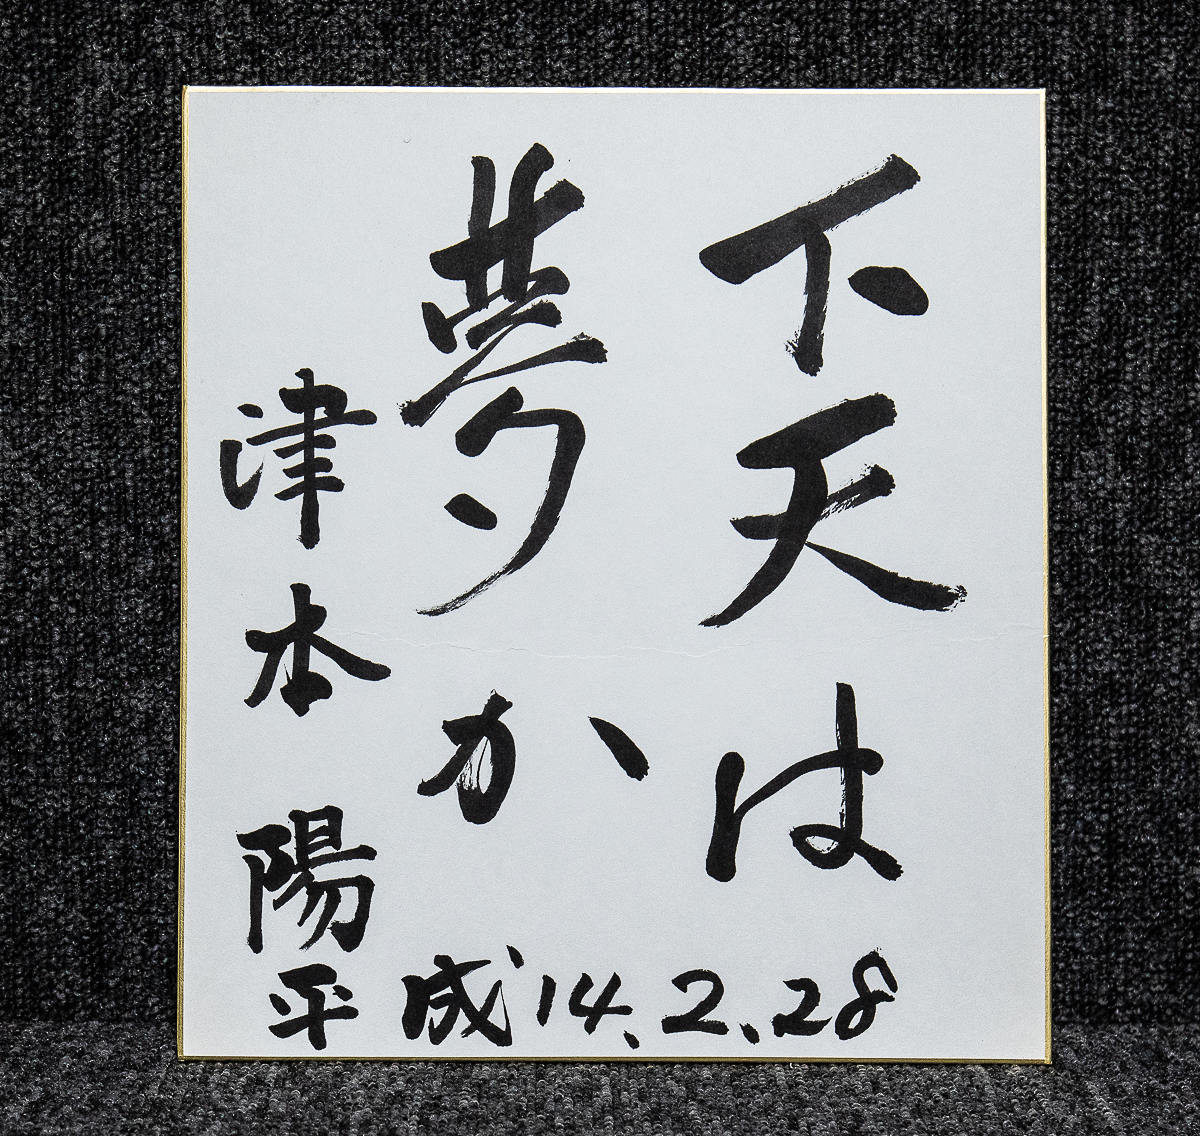 下天は
夢か
津本陽
平成14.2.28